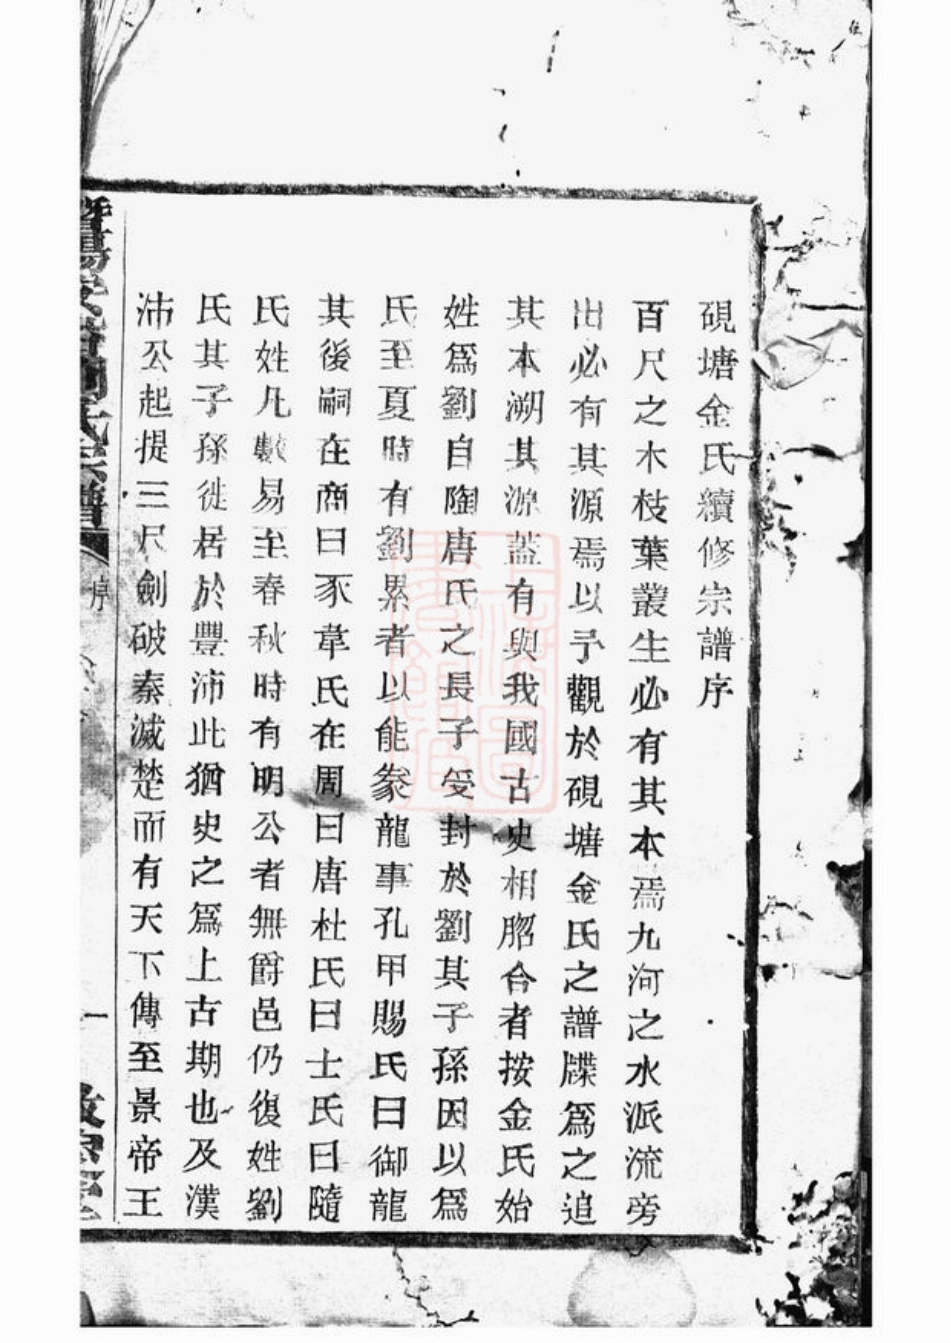 硯塘金氏續修宗譜序
百尺之木枝葉叢生必有其本焉九河之水派流旁
出必有其源焉以予觀於硯塘金氏之譜牒爲之追
其本溯其源蓋有與我國古史相脗合者按金氏始
姓爲劉自陶唐氏之長子受封於劉其子孫因以爲
氏至夏時有劉累者以能豢龍事孔甲賜氏曰御龍
其後嗣在商曰豕韋氏在周曰唐杜氏曰士氏曰隨
氏姓凡數易至春秋時有明公者無爵邑仍復姓劉
氏其子孫徙居於豐沛此猶史之爲上古期也及漢
沛公起提三尺劍破秦滅楚而有天下傳至景帝王
氏宗譜
序
一